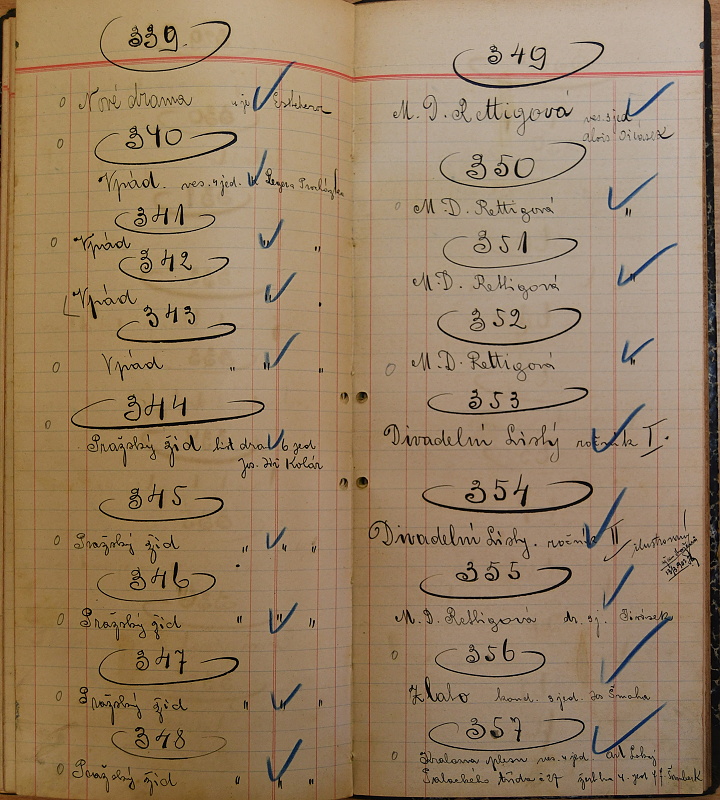 339.
Nové drama
340
Vpád. ves. 4 jed.
341
Vpád " "
342
Vpád "
343
Vpád " " "
344
Pražský žid hist dra 6 jed
Jos. Jiří Kolár
345
Pražský žid " " "
346
Pražský žid " " "
347
Pražský žid " " "
348
Pražský žid " " "
349
M. D. Rettigová ves. 3 jed
Alois Jirásek
350
M. D. Rettigová "
351
M. D. Rettigová "
352
M. D. Rettigová "
353
Divadelní Listy ročník I.
354
Divadelní Listy. ročník II
ilustrovaný
355
M. D. Rettigová dr. 3 j. Jirásek
356
Zlato kom. 3 jed. Jos Šmaha
357
ves. 4 jed.
Palackého třída 27 4. jed